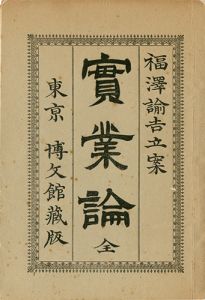 福澤諭吉立案
實業論 全
東京 博文館藏版